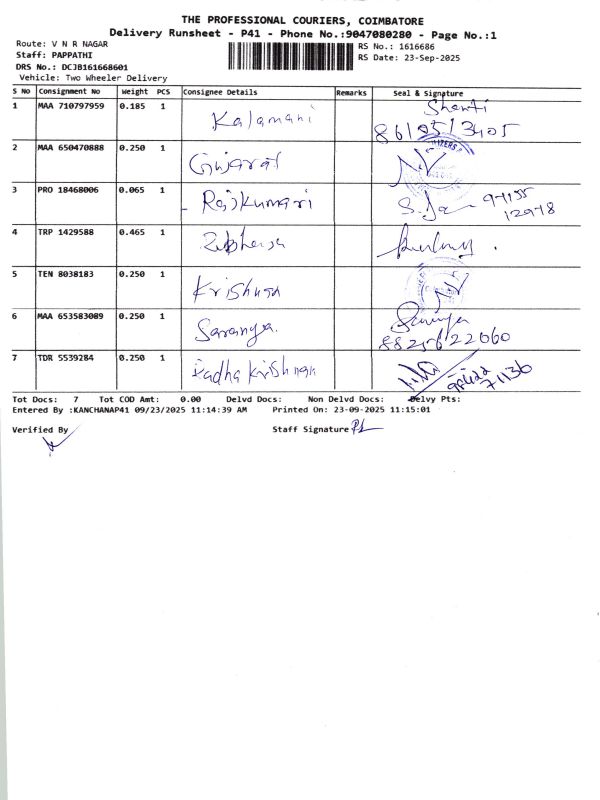 THE PROFESSIONAL COURIERS, COIMBATORE
Delivery Runsheet - P41 - Phone No.:9047080280 - Page No.:1
Route: V N R NAGAR
Staff: PAPPATHI
DRS No.: DCJB161668601
Vehicle: Two Wheeler Delivery
RS No.: 1616686
RS Date: 23-Sep-2025
S No Consignment No Weight PCS Consignee Details Remarks Seal & Signature
1 MAA 710797959 0.185 1 Kalamani Shanti
2 MAA 650470888 0.250 1 Gujarat
3 PRO 18468006 0.065 1 Rajkumari
4 TRP 1429588 0.465 1
5 TEN 8038183 0.250 1 Krishnan
6 MAA 653583089 0.250 1 Saranya. Saranya
7 TDR 5539284 0.250 1 Radha Krishnan
Tot Docs: 7 Tot COD Amt: 0.00 Delvd Docs: Non Delvd Docs: Delvy Pts:
Entered By :KANCHANAP41 09/23/2025 11:14:39 AM Printed On: 23-09-2025 11:15:01
Verified By Staff Signature